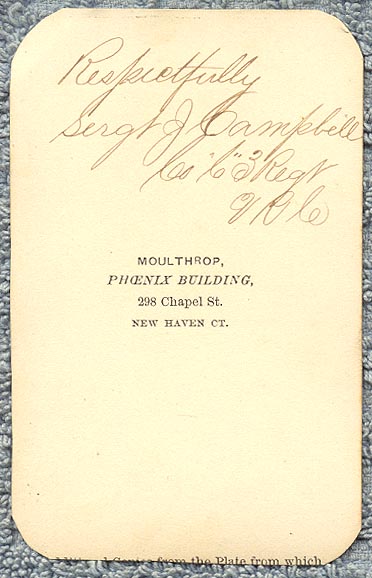 Respectfully
Sergt J Campbell
Co "C" 3 Regt
V R C
MOULTHROP,
PHŒNIX BUILDING,
298 Chapel St.
NEW HAVEN CT.
from the Plate from which